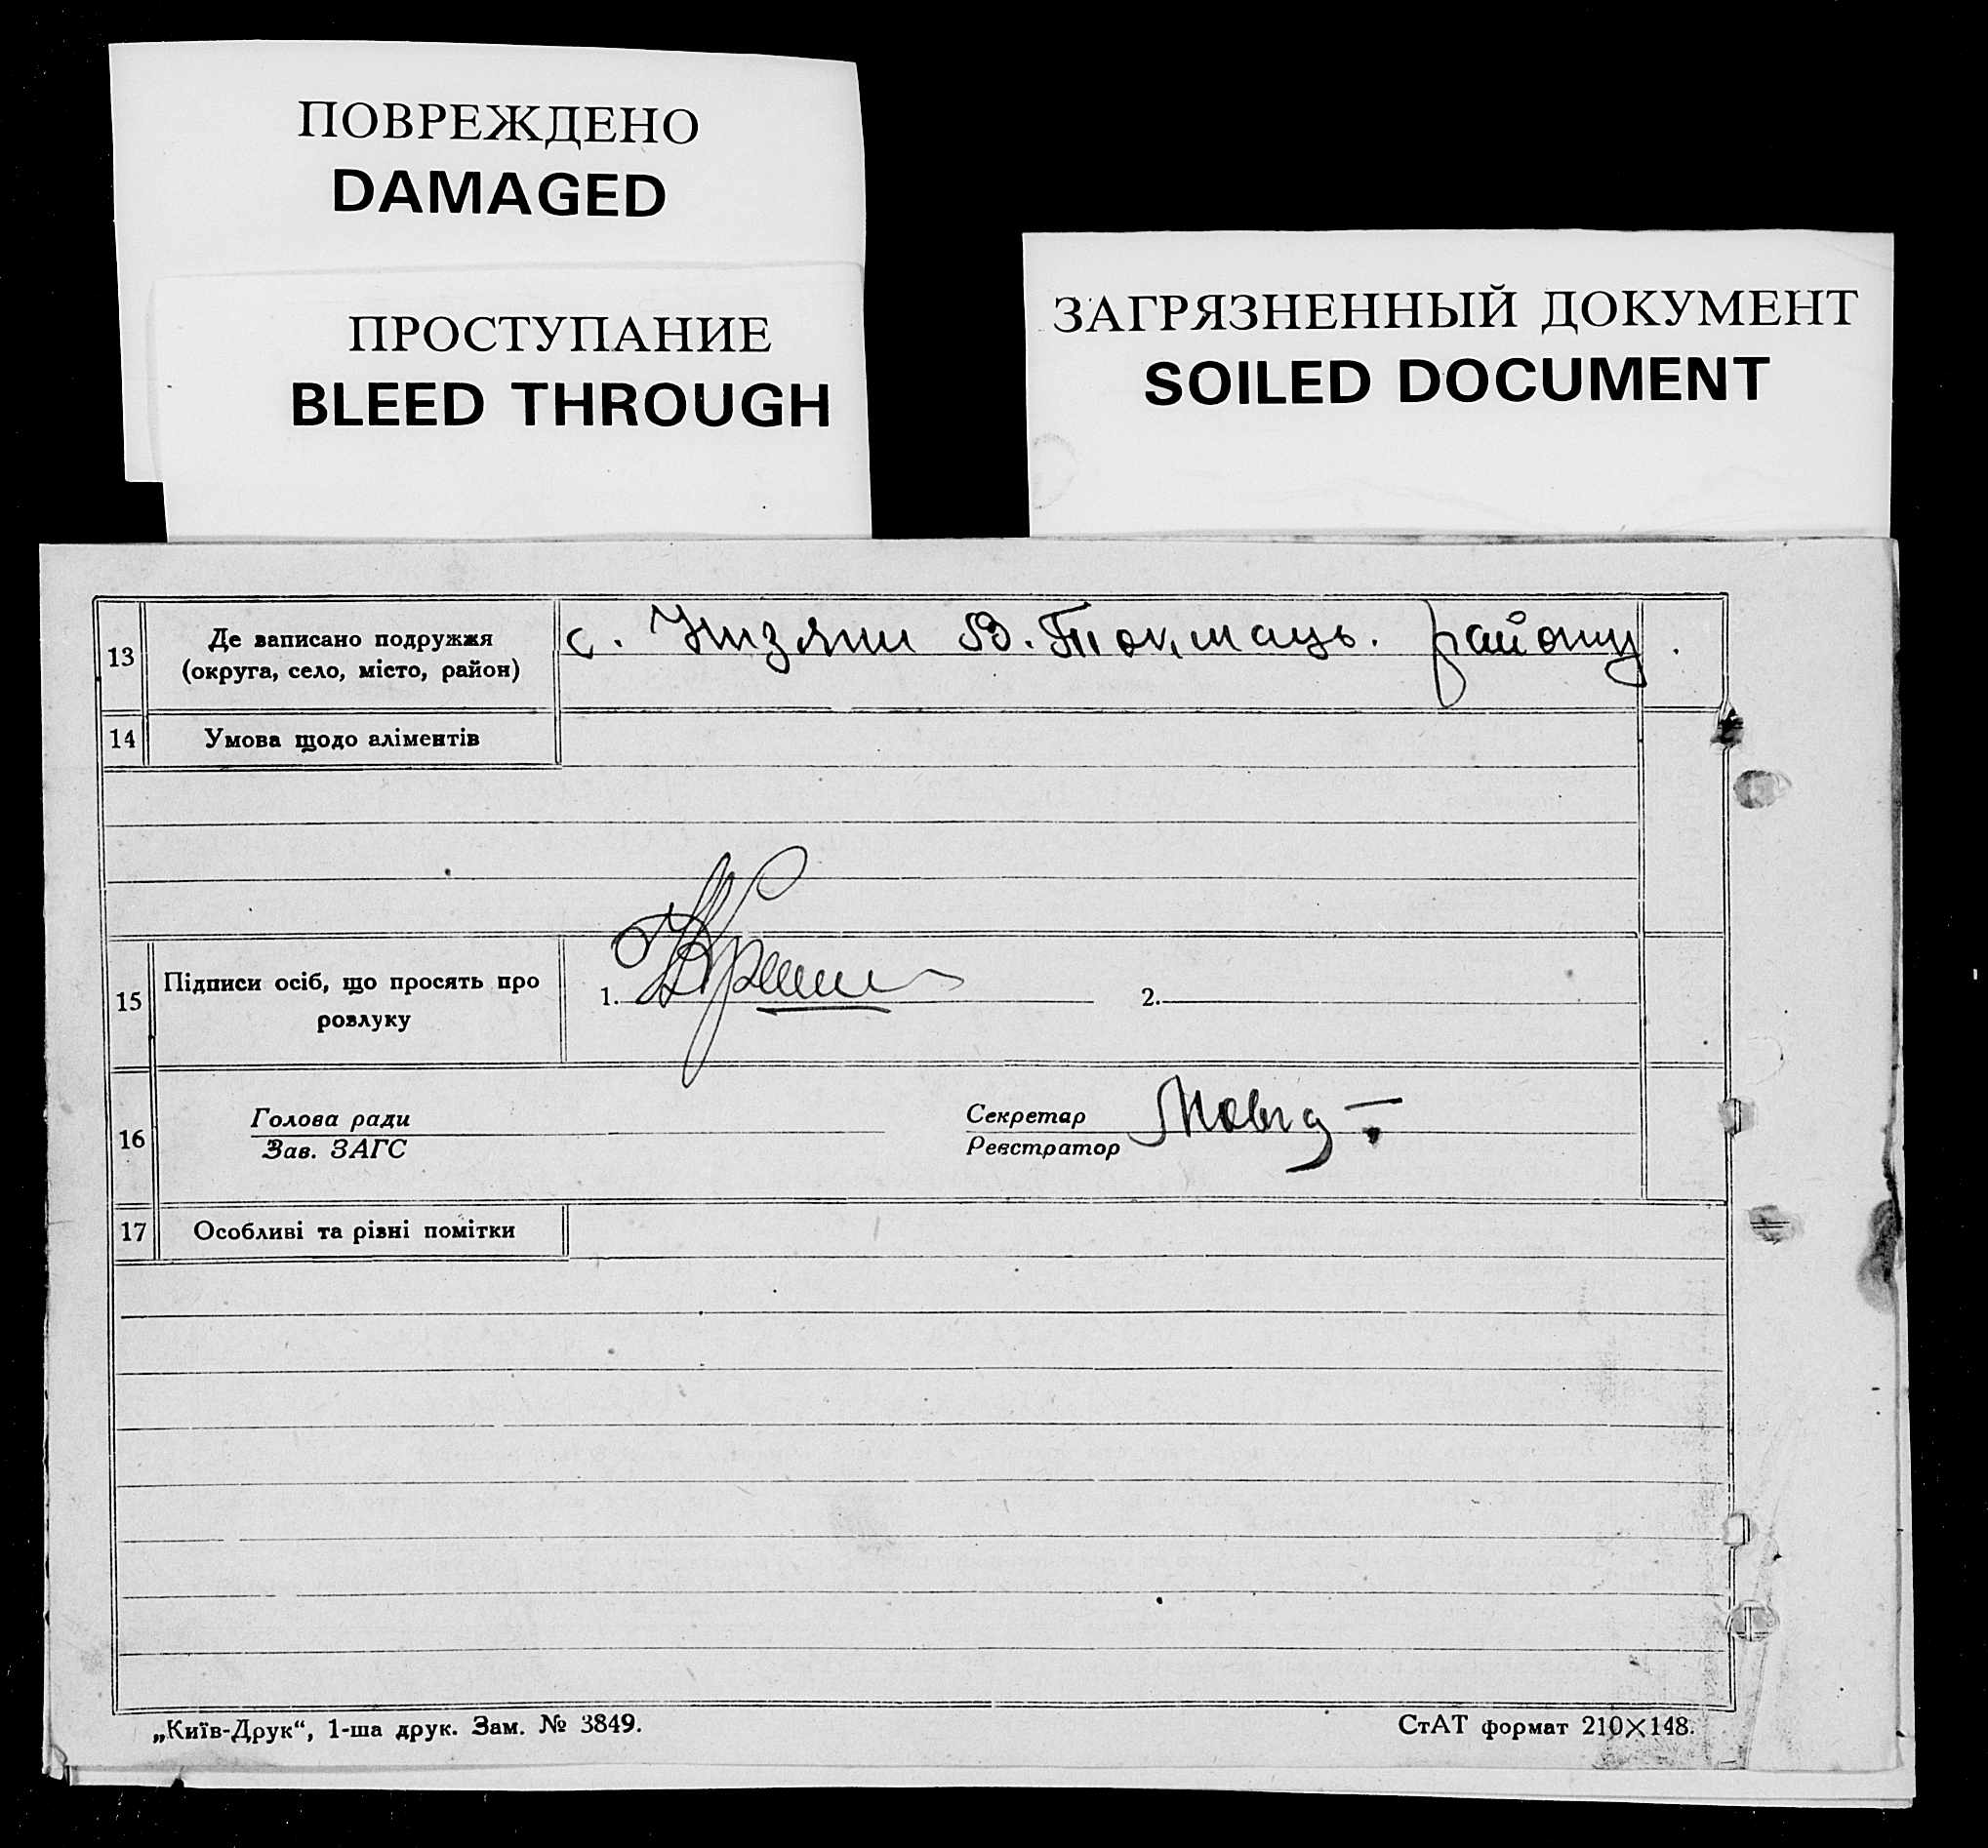 ПОВРЕЖДЕНО
DAMAGED
ПРОСТУПАНИЕ
BLEED THROUGH
ЗАГРЯЗНЕННЫЙ ДОКУМЕНТ
SOILED DOCUMENT
13
Де записано подружжя
(округа, село, місто, район)
с. Низяни В. Токмаць. району.
14
Умова щодо аліментів
15
Підписи осіб, що просять про
розлуку
1.
2.
16
Голова ради
Зав. ЗАГС
Секретар
Реєстратор
17
Особливі та різні помітки
„Київ-Друк“, 1-ша друк. Зам. № 3849.
СтАТ формат 210×148.